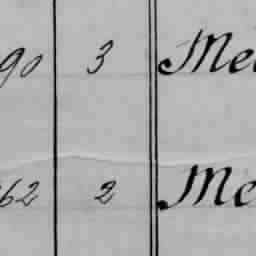 90 3 Me
62 2 Me